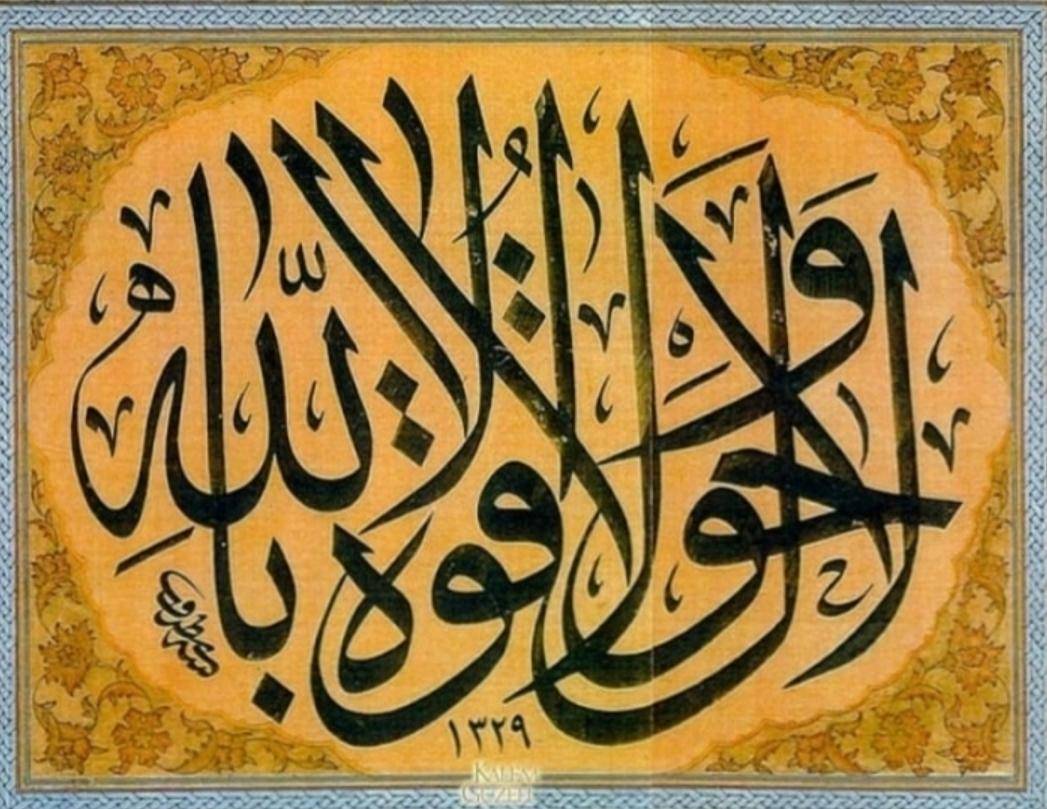 لا حول ولا قوة الا بالله
١٣٢٩
KALEM
GÜZELİ